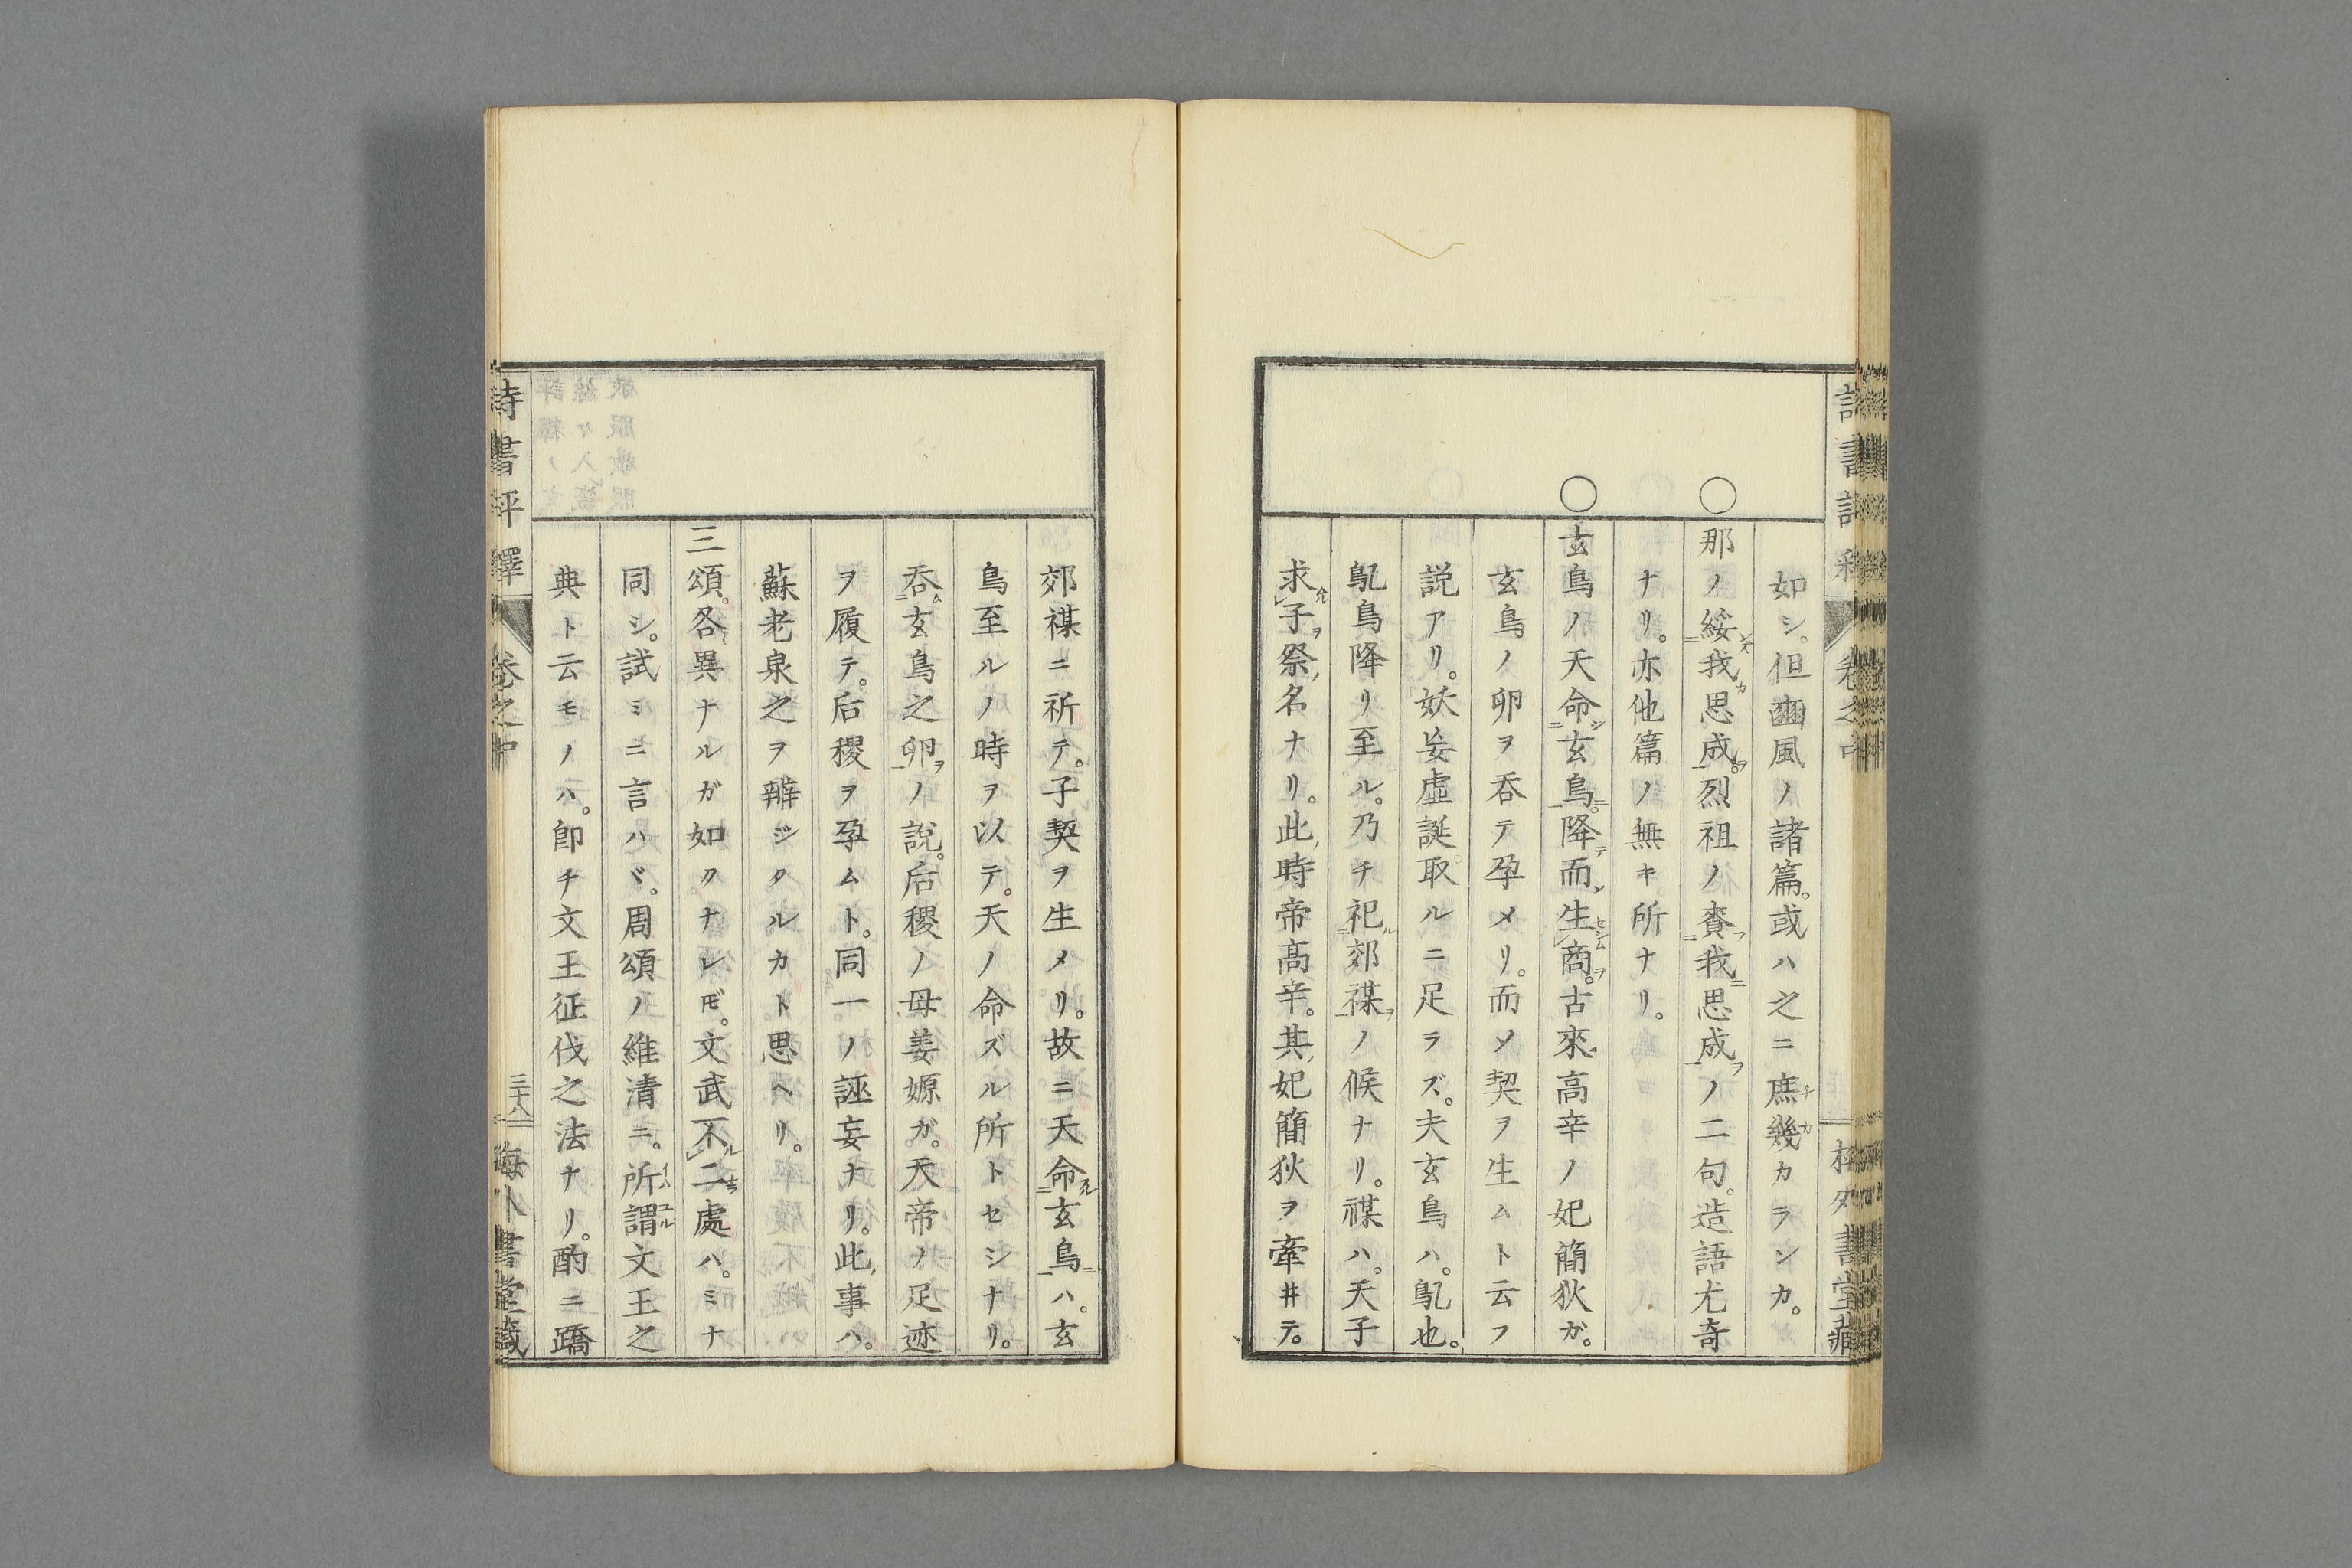 如シ。但豳風ノ諸篇。或ハ之ニ庶チ幾カカランカ。
○那ノ綏二我カ思成一ヲ。烈祖ノ賚二フ我ニ思成一ヲノ二句。造語尤奇
ナリ。亦他篇ノ無キ所ナリ。
○玄鳥ノ天命二シ玄鳥一ニ。降テ而シテ生レセシム商ヲ。古來高辛ノ妃簡狄ガ。
玄鳥ノ卵ヲ呑テ孕メリ。而メ契ヲ生ムト云フ
説アリ。妖妄虛誕取ルニ足ラズ。夫玄鳥ハ。鳦也。
鳦鳥降リ至ル。乃チ祀二ル郊禖一ヲノ候ナリ。禖ハ。天子
求レ子ヲ祭ノ名ナリ。此ノ時帝髙辛。其ノ妃簡狄ヲ牽ヰテ。
郊禖ニ祈テ。子契ヲ生メリ。故ニ天命二スル玄鳥一ニハ。玄
鳥至ルノ時ヲ以テ。天ノ命ズル所トセシナリ。
呑二ム玄鳥之卵一ヲノ說。后稷ノ母姜嫄ガ。天帝ノ足迹
ヲ履テ。后稷ヲ孕ムト。同一ノ誣妄ナリ。此ノ事ハ。
蘇老泉之ヲ辨ジタルカト思ヘリ。
三頌。各異ナルガ如クナレドモ。文武不レル二ナラ處ハ。ミナ
同シ。試ミニ言ハヾ。周頌ノ維清ニ。所イハ謂ユル文王之
典ト云モノハ。卽チ文王征伐之法ナリ。酌ニ蹻
詩書評釋
卷之中
三十八